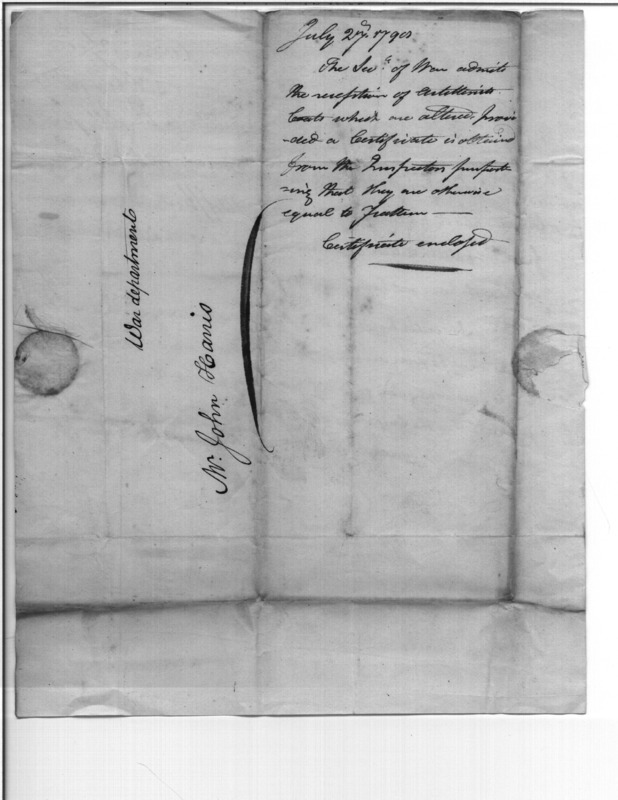 July 27th 1798
The Secy of War admits
the reception of Artillerists
Coats which are altered, provi
-ded a Certificate is obtained
from the Inspectors purport
-ing that they are otherwise
equal to Pattern —
Certificate enclosed
War department
Mr. John Harris